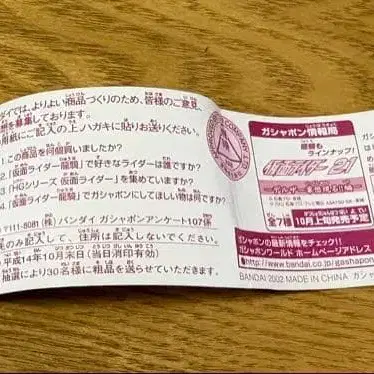 ダイでは、よりよい商品づくりのため、皆様のご意見、
想を募集しております。
用紙にご記入の上ハガキに貼りお送りください。
この商品を何個買いましたか?
「仮面ライダー龍騎」で好きなライダーは誰ですか?
「HGシリーズ 仮面ライダー」を集めていますか?
「仮面ライダー龍騎」でガシャポンにしてほしい物は何ですか?
〒111-8081 (株) バンダイ ガシャポンアンケート107係
のみ記して、住所は記入しないでください。
平成14年10月末日 (当日消印有効)
抽選により30名様に粗品を送らせていただきます。
ガシャポン情報局
ラインナップ!
仮面ライダー 21
全7種
10月上旬発売予定
ガシャポンの最新情報をチェック!!
ガシャポンワールド ホームページアドレス
http://www.bandai.co.jp/gashapon
BANDAI 2002 MADE IN CHINA ガシ